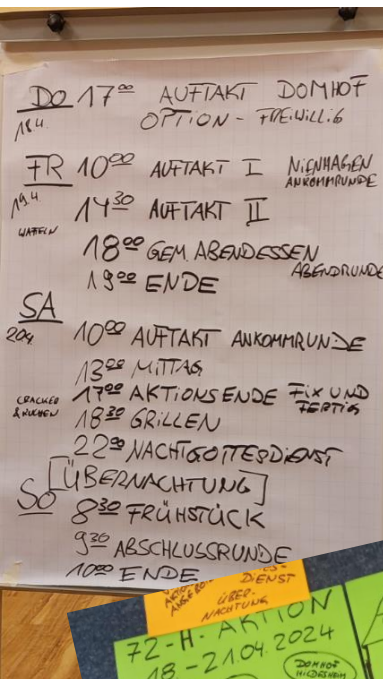 DO 17⁰⁰ AUFTAKT DOMHOF
18.4. OPTION - FREIWILLIG
FR 10⁰⁰ AUFTAKT I NIENHAGEN
ANKOMMRUNDE
19.4 14³⁰ AUFTAKT II
WAFFELN
18⁰⁰ GEM. ABENDESSEN
ABENDRUNDE
19⁰⁰ ENDE
SA
20.4. 10⁰⁰ AUFTAKT ANKOMMRUNDE
13⁰⁰ MITTAG
CRACKER & KUCHEN 17⁰⁰ AKTIONSENDE FIX UND
FERTIG
18³⁰ GRILLEN
22⁰⁰ NACHTGOTTESDIENST
[ÜBERNACHTUNG]
SO 8³⁰ FRÜHSTÜCK
9³⁰ ABSCHLUSSRUNDE
10⁰⁰ ENDE
DIENST
ÜBER-
NACHTUNG
72-H-AKTION
18.-21.04.2024
DOMHOF
HILDESHEIM